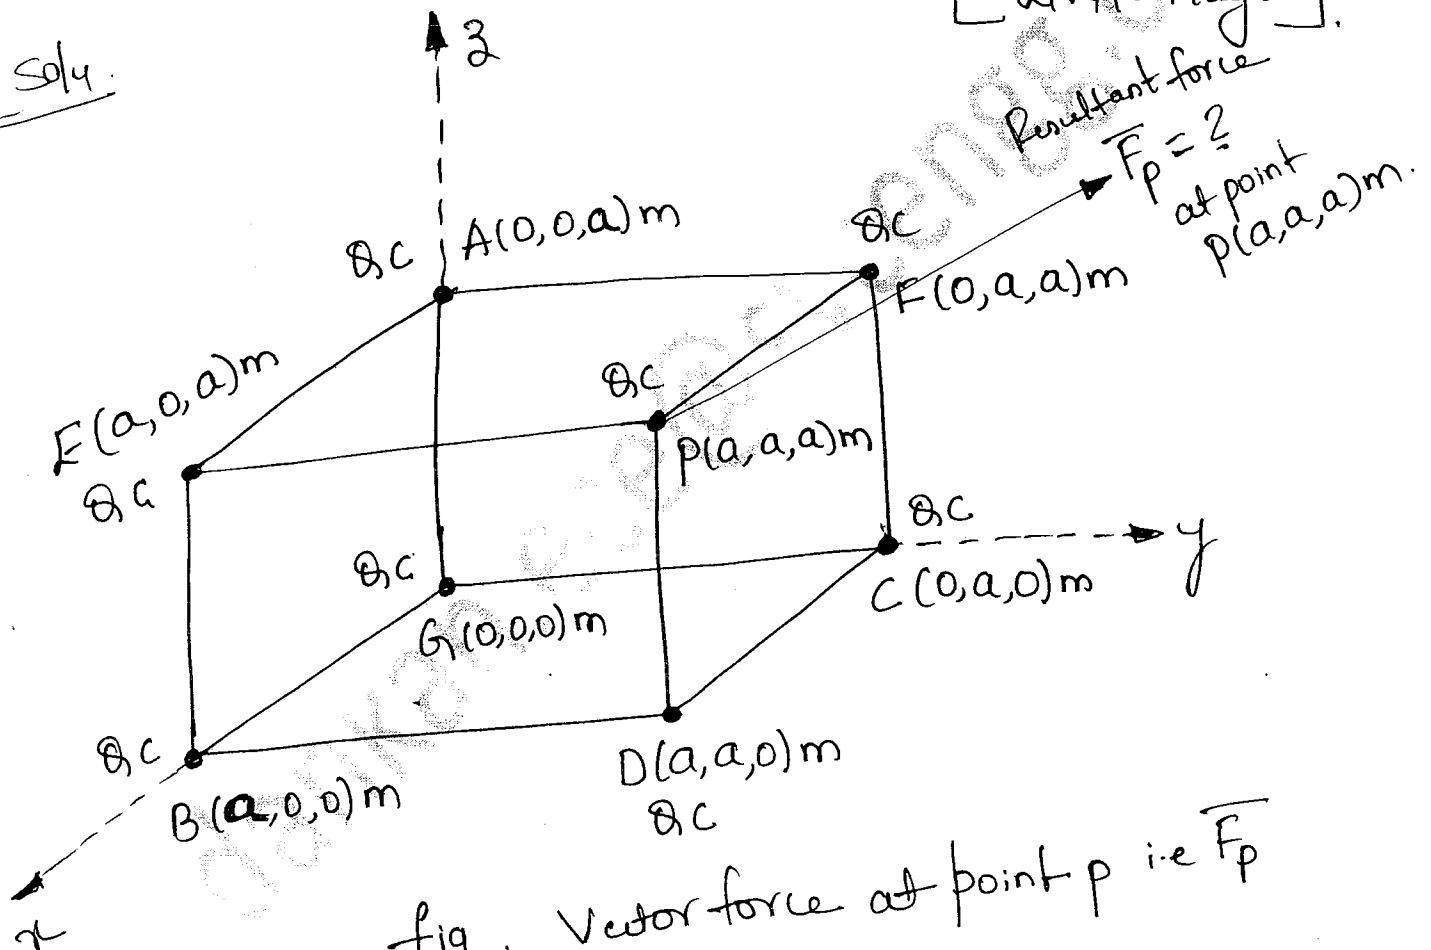 Soln.
z
Resultant force
F̅p = ?
at point
P(a,a,a)m.
QC
A(0,0,a)m
QC
F(0,a,a)m
E(a,0,a)m
QC
QC
P(a,a,a)m
QC
C(0,a,0)m
y
QC
G(0,0,0)m
QC
B(a,0,0)m
D(a,a,0)m
QC
x
fig. Vector force at point p i.e F̅p